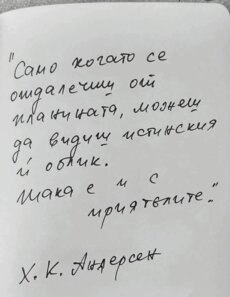 "Само когато се
отдалечиш от
планината, можеш
да видиш истинския
ѝ облик.
Така е и с
приятелите."
Х. К. Андерсен